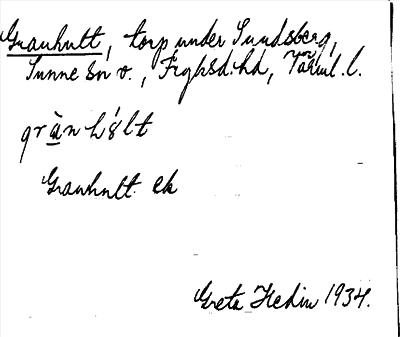 Granhult, torp under Sundsberg,
Sunne sn v., Fryksd. hd, Värml. l.
grànhʹɞlt
Granhult ek
Greta Hedin 1934.